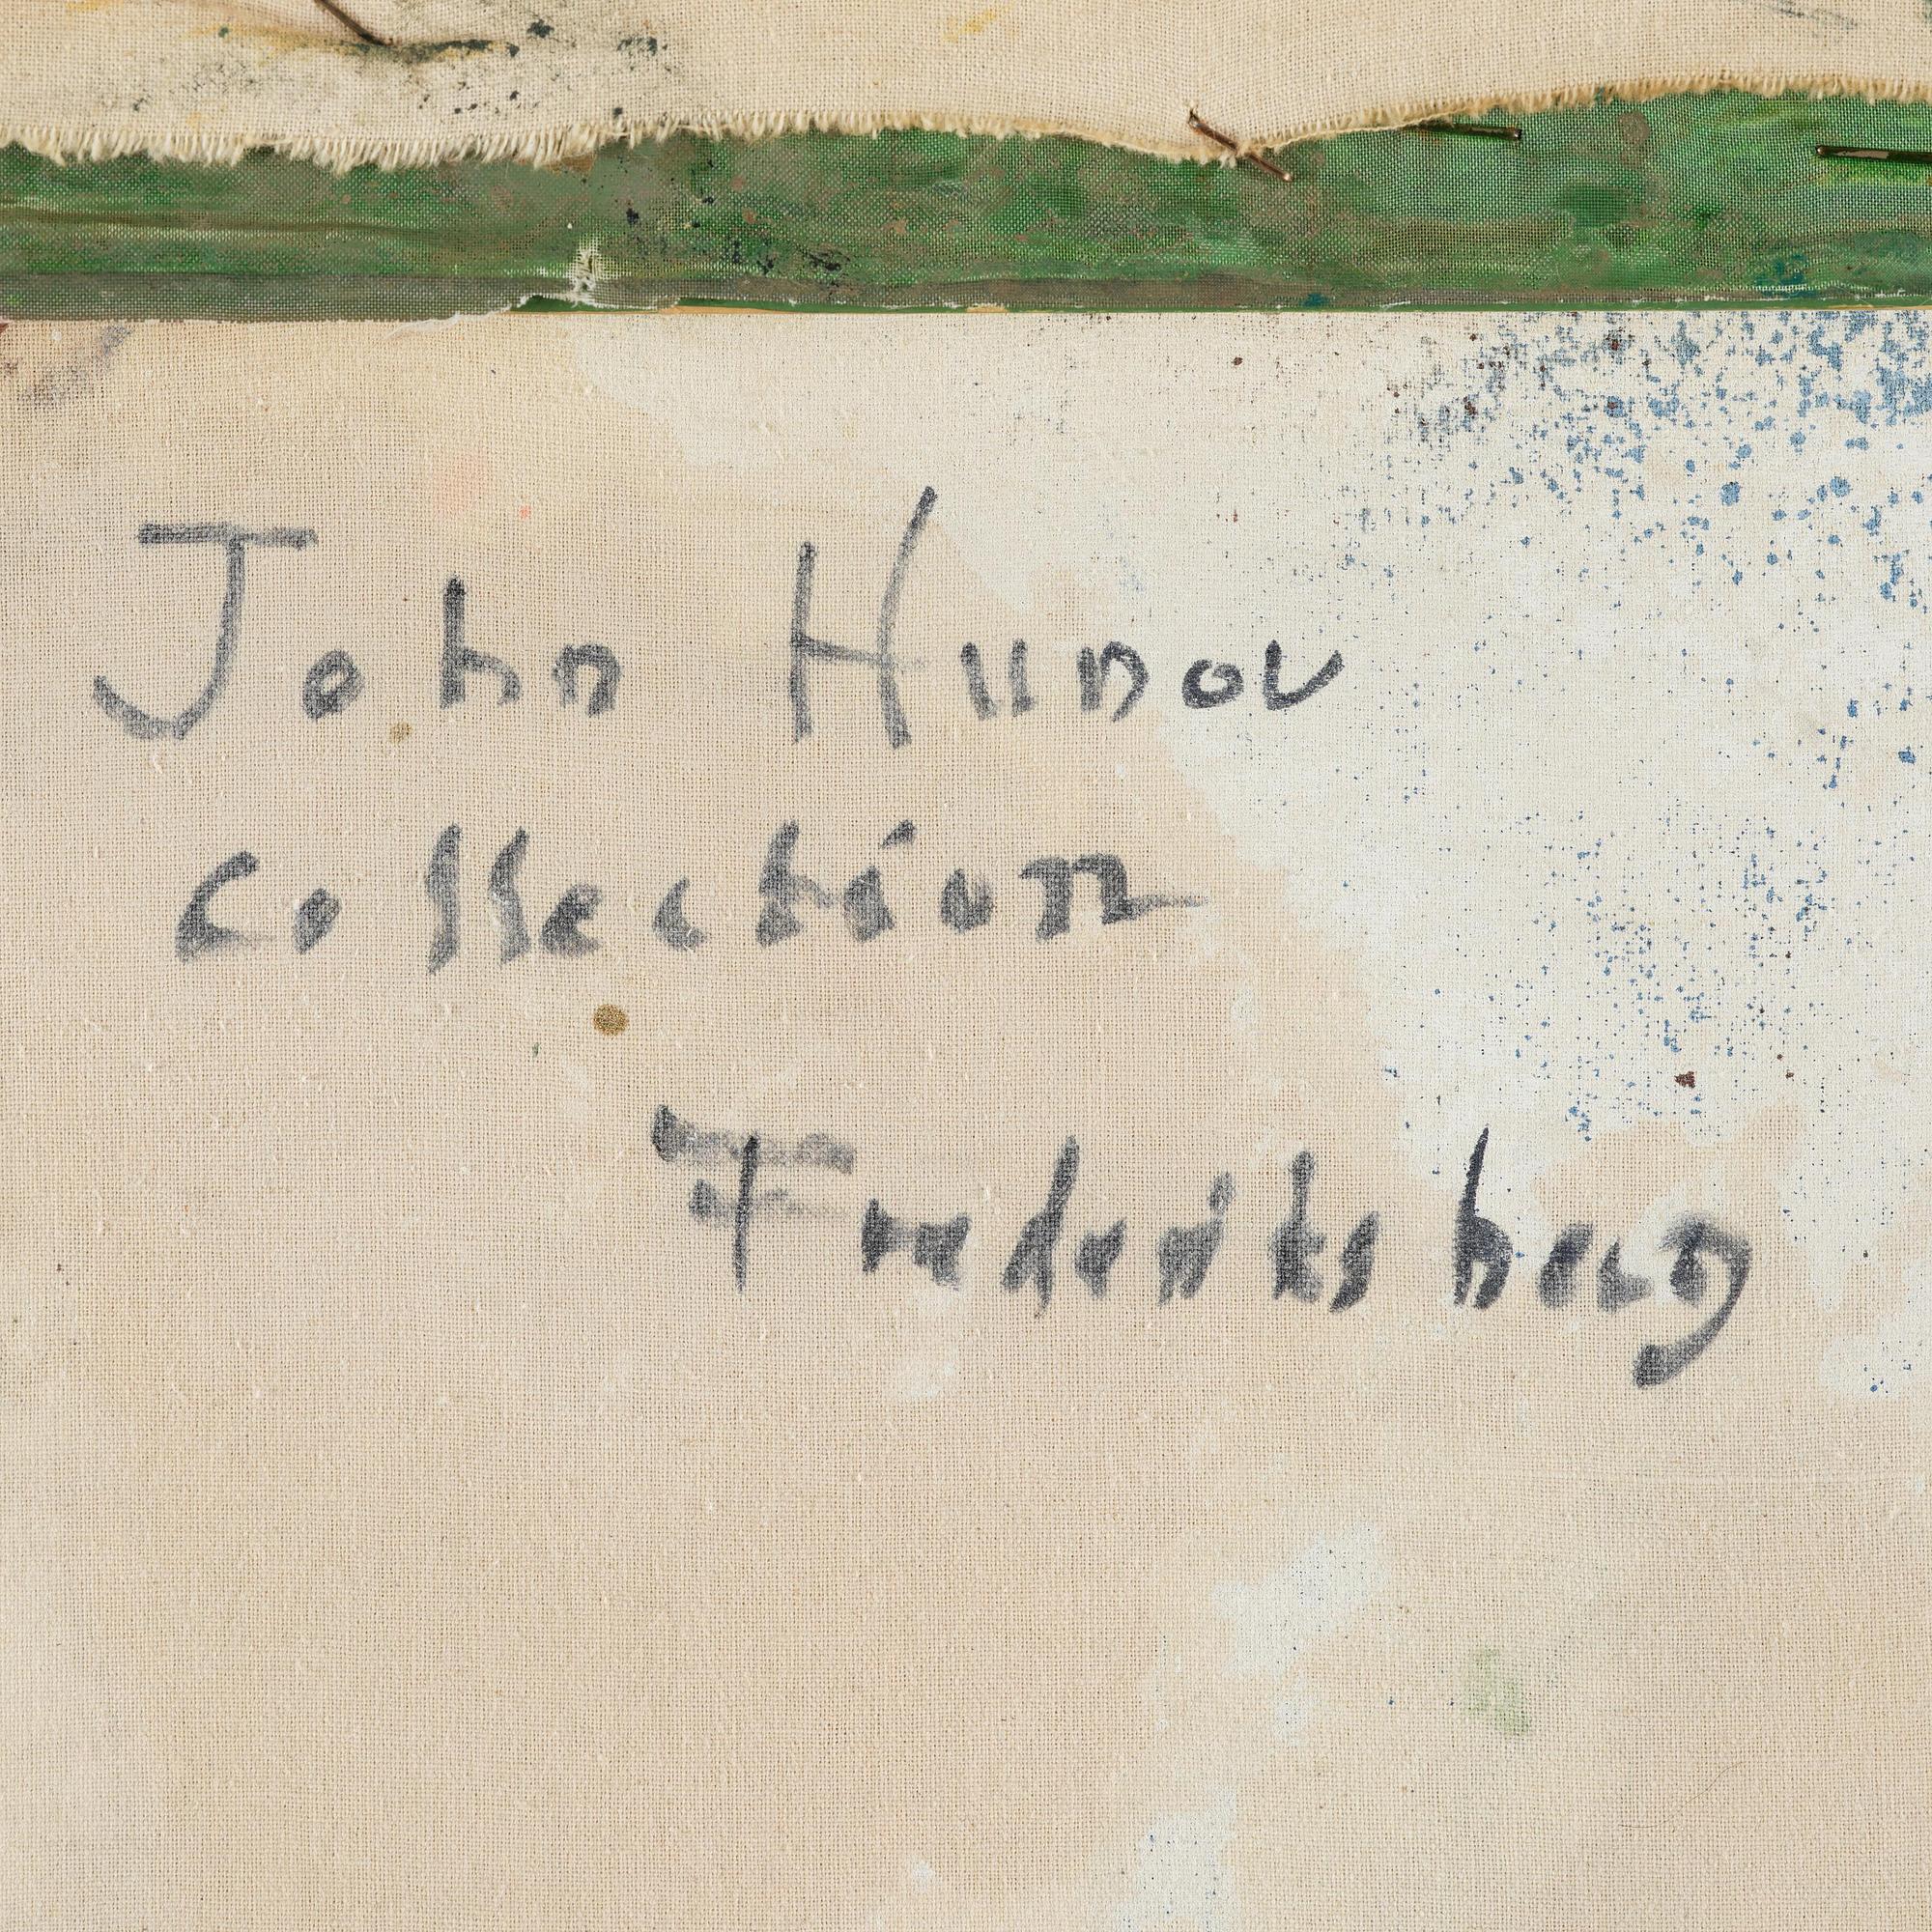 John Hunov
collection
Frederiksberg